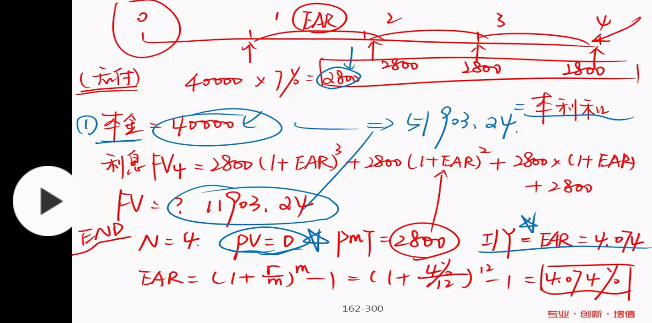 0 1 EAR 2 3 4
2800 2800 2800
40000 × 7% = 2800
① 本金 = 40000 ⇒ 51903.24 = 本利和
利息 FV₄ = 2800(1+EAR)³ + 2800(1+EAR)² + 2800×(1+EAR)
+ 2800
FV = ? 11903.24
END N = 4. PV = 0 PMT = 2800 I/Y = EAR = 4.074
EAR = (1 + r/m)^m - 1 = (1 + 4%/12)^12 - 1 = 4.074%
162-300
专业·创新·增值